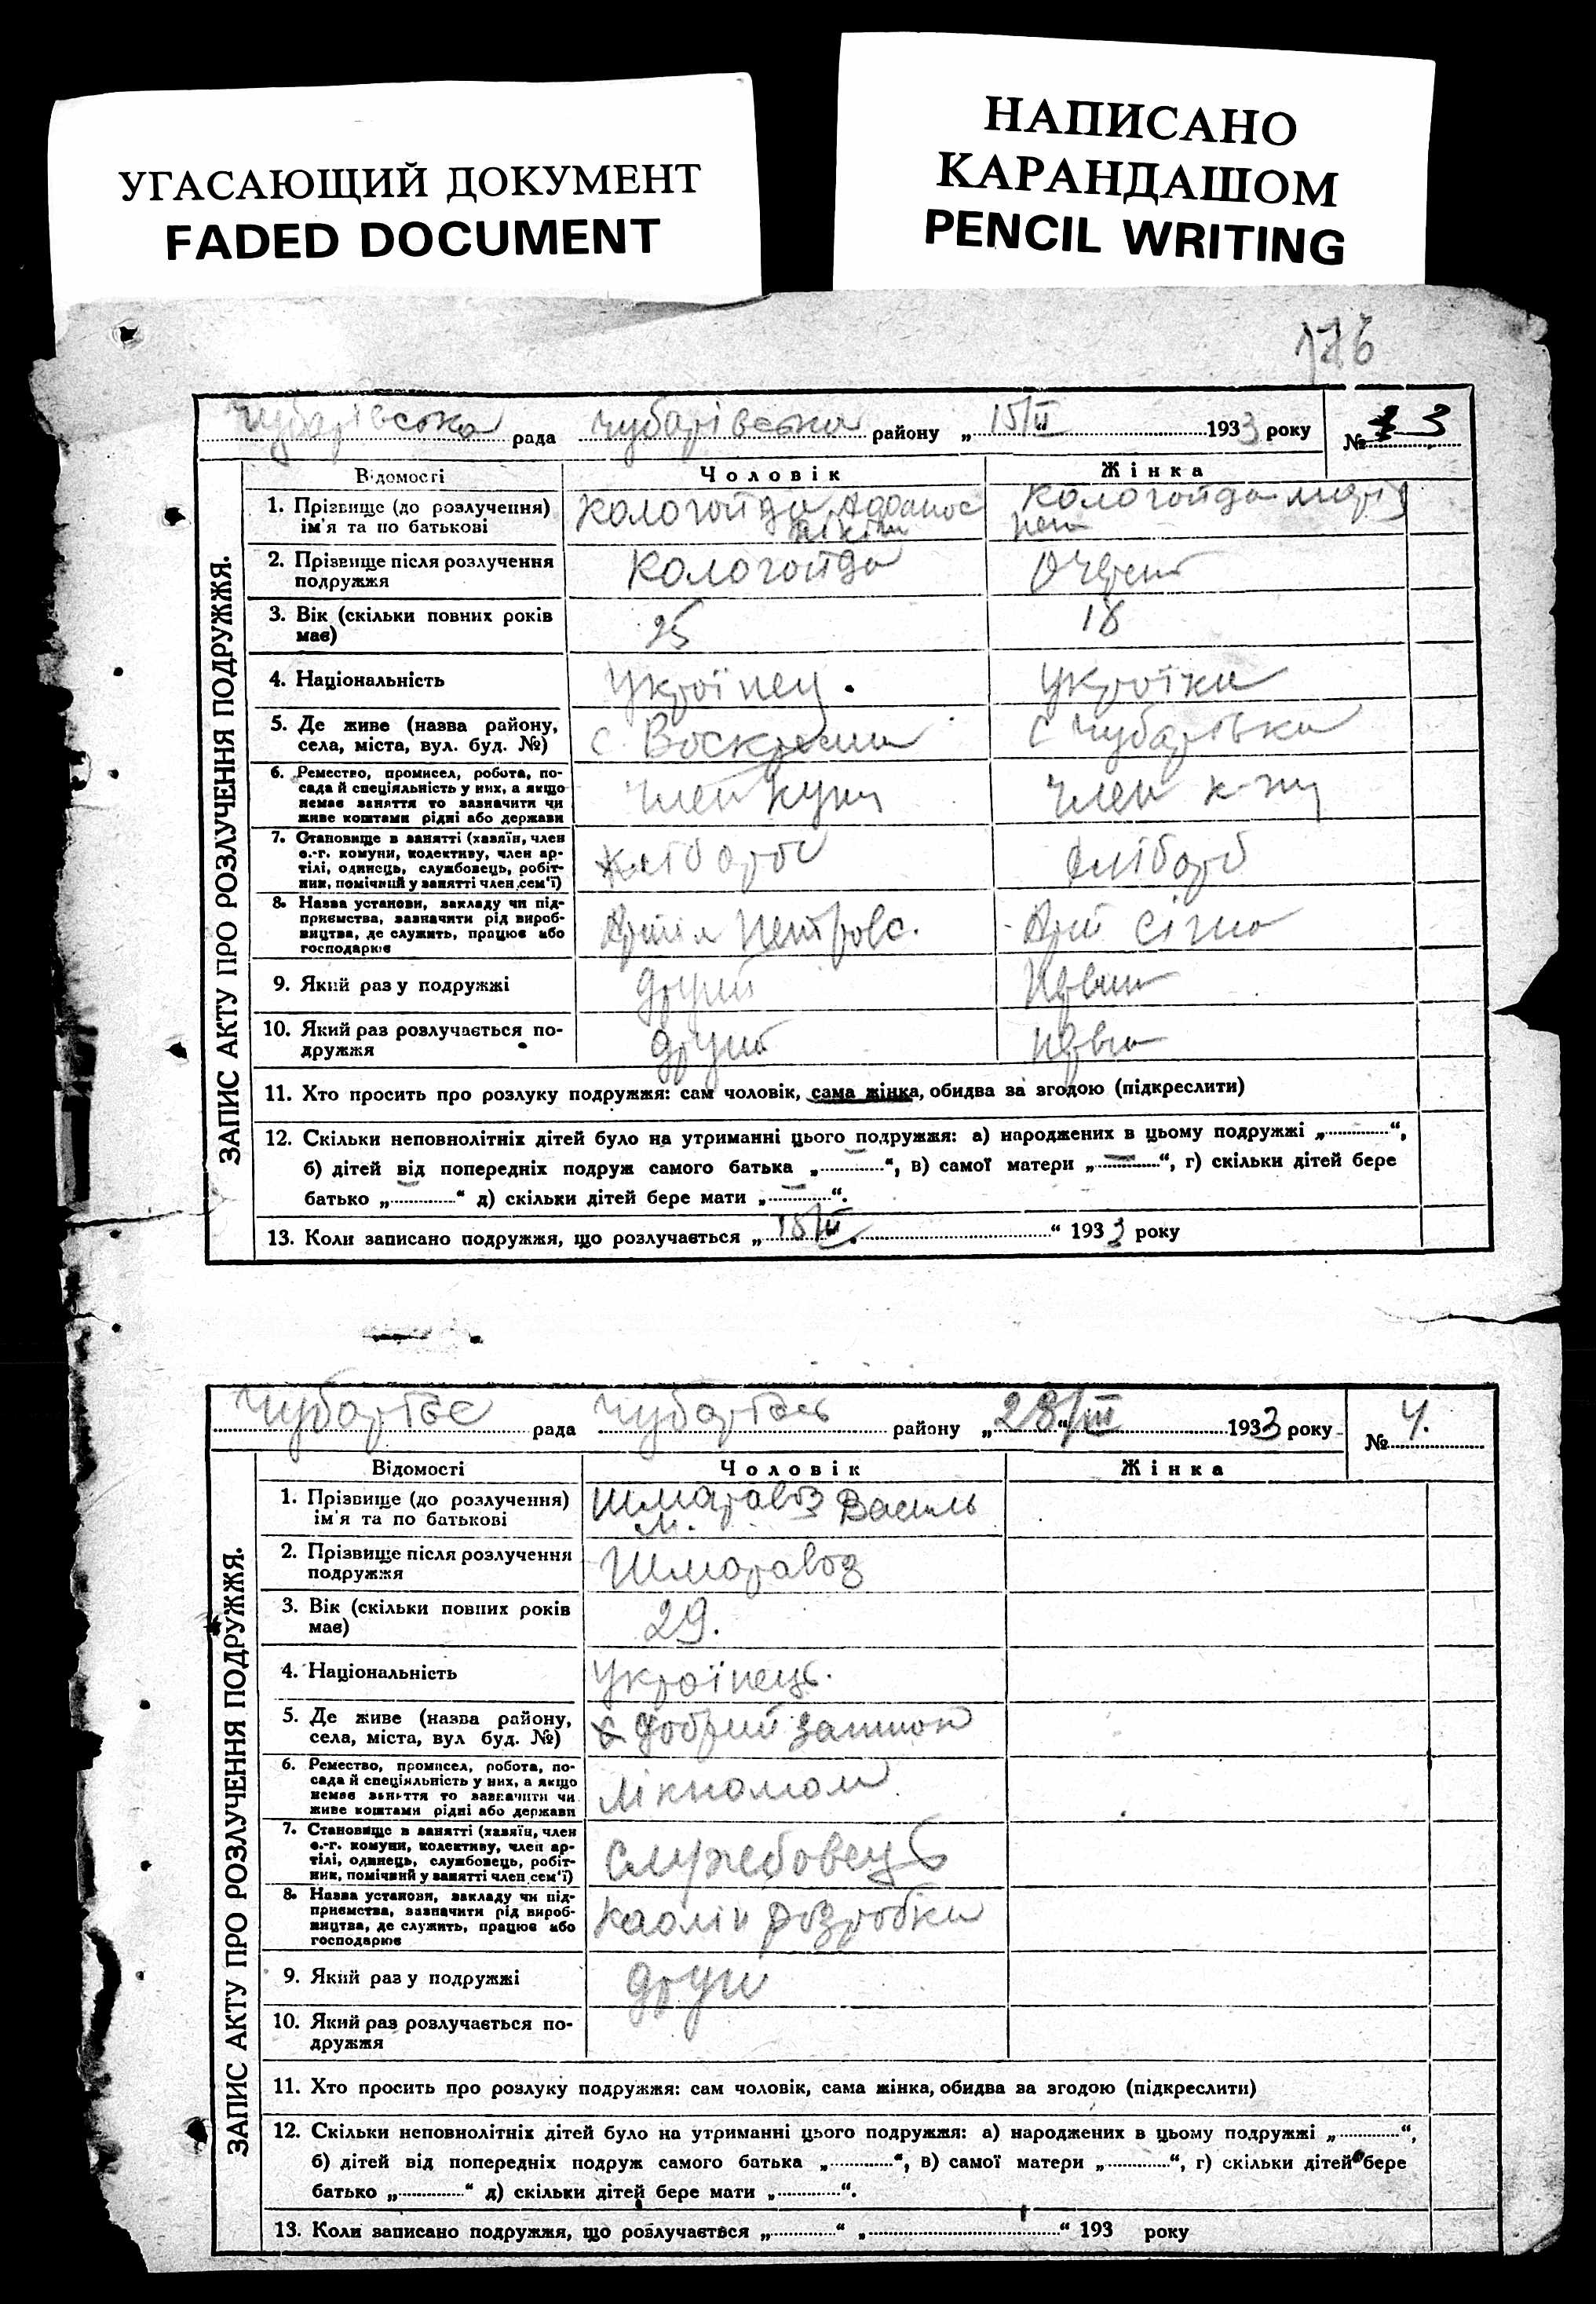 УГАСАЮЩИЙ ДОКУМЕНТ
FADED DOCUMENT
НАПИСАНО
КАРАНДАШОМ
PENCIL WRITING
176
Чубарівська рада Чубарівська району „ 15/II 1933 року № 3
ЗАПИС АКТУ ПРО РОЗЛУЧЕННЯ ПОДРУЖЖЯ.
Відомості Чоловік Жінка
1. Прізвище (до розлучення) ім'я та по батькові Кологойда Нікіт Кологойда
2. Прізвище після розлучення подружжя Кологойда
3. Вік (скільки повних років має) 25 18
4. Національність Українец. Украінка
5. Де живе (назва району, села, міста, вул. буд. №) с. Воскресенка с Чубарівка
6. Ремество, промисел, робота, посада й спеціяльність у них, а якщо немає заняття то зазначити чи живе коштами рідні або держави член член
7. Становище в занятті (хазяїн, член с.-г. комуни, колективу, член артілі, одинець, службовець, робітник, помічний у занятті член сем'ї) хлібороб хлібороб
8. Назва установи, закладу чи підприємства, зазначити рід виробництва, де служить, працює або господарює Артіл Петровс. Арт Січна
9. Який раз у подружжі другий Первий
10. Який раз розлучається подружжя другий
11. Хто просить про розлуку подружжя: сам чоловік, сама жінка, обидва за згодою (підкреслити)
12. Скільки неповнолітніх дітей було на утриманні цього подружжя: а) народжених в цьому подружжі „ — “,
б) дітей від попередніх подруж самого батька „ “, в) самої матери „ — “, г) скільки дітей бере
батько „ — “ д) скільки дітей бере мати „ — “.
13. Коли записано подружжя, що розлучається „ 15/II “ 1933 року
рада району „ 28/III 1933 року № 4.
ЗАПИС АКТУ ПРО РОЗЛУЧЕННЯ ПОДРУЖЖЯ.
Відомості Чоловік Жінка
1. Прізвище (до розлучення) ім'я та по батькові Шмаравоз Василь М.
2. Прізвище після розлучення подружжя Шмаравоз
3. Вік (скільки повних років має) 29.
4. Національність Українець.
5. Де живе (назва району, села, міста, вул буд. №) Добрий
6. Ремество, промисел, робота, посада й спеціяльність у них, а якщо немає заняття то зазначити чи живе коштами рідні або держави Лікпомом
7. Становище в занятті (хазяїн, член с.-г. комуни, колективу, член артілі, одинець, службовець, робітник, помічний у занятті член сем'ї) Служебовець
8. Назва установи, закладу чи підприємства, зазначити рід виробництва, де служить, працює або господарює Каолін розробки
9. Який раз у подружжі други
10. Який раз розлучається подружжя
11. Хто просить про розлуку подружжя: сам чоловік, сама жінка, обидва за згодою (підкреслити)
12. Скільки неповнолітніх дітей було на утриманні цього подружжя: а) народжених в цьому подружжі „ “,
б) дітей від попередніх подруж самого батька „ “, в) самої матери „ “, г) скільки дітей бере
батько „ “ д) скільки дітей бере мати „ “.
13. Коли записано подружжя, що розлучається „ “ „ “ 193 року